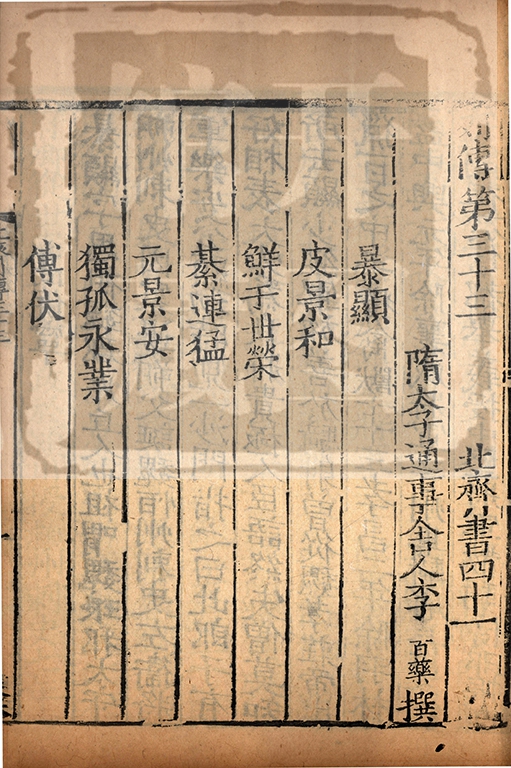 列傳第三十三 北齊書四十一
隋太子通事舍人李 百藥 撰
暴顯
皮景和
鮮于世榮
綦連猛
元景安
獨孤永業
傅伏